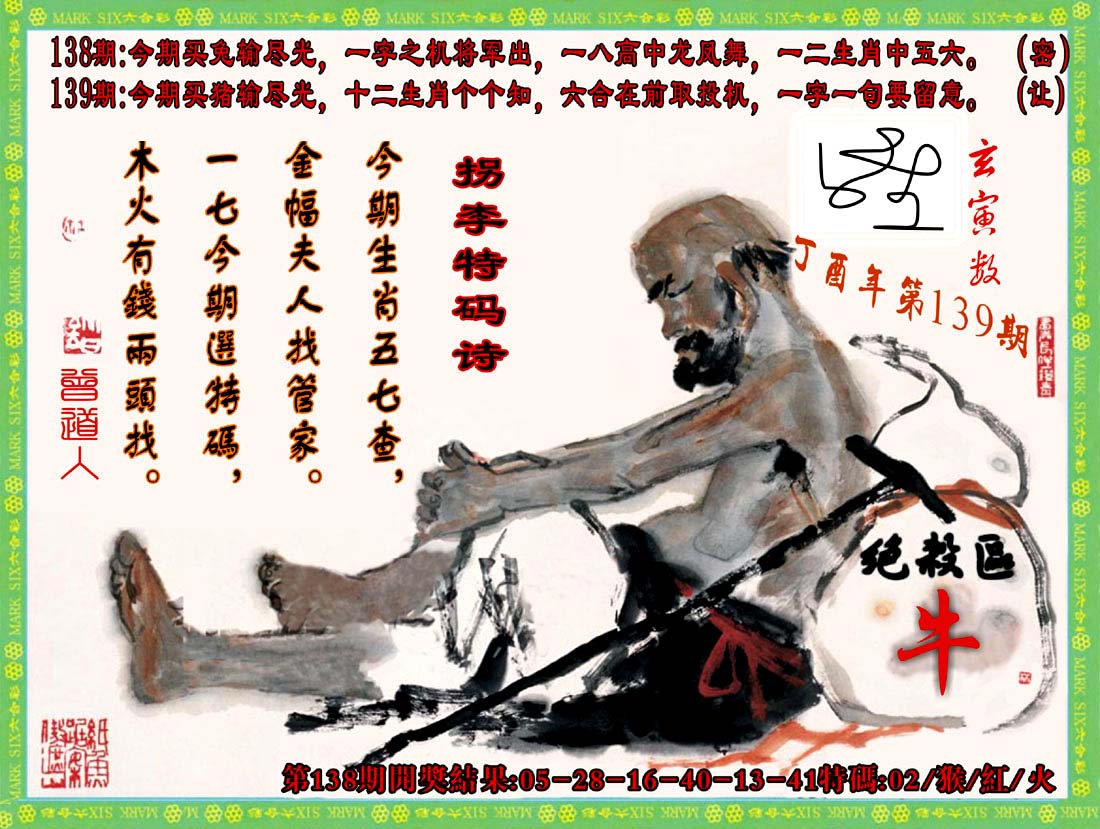 MARK SIX六合彩 MARK SIX六合彩 MARK SIX六合彩 MARK SIX六合彩 MARK SIX六合彩 MARK SIX六合彩
138期:今期买兔输尽光，一字之机将军出，一八高中龙凤舞，一二生肖中五六。 (密)
139期:今期买猪输尽光，十二生肖个个知，六合在前取投机，一字一句要留意。 (让)
玄寅数
丁酉年第139期
拐李特码诗
今期生肖五七查，
金幅夫人找管家。
一七今期選特碼，
木火有錢兩頭找。
曾道人
绝殺區
牛
第138期開獎結果:05-28-16-40-13-41特碼:02/猴/紅/火